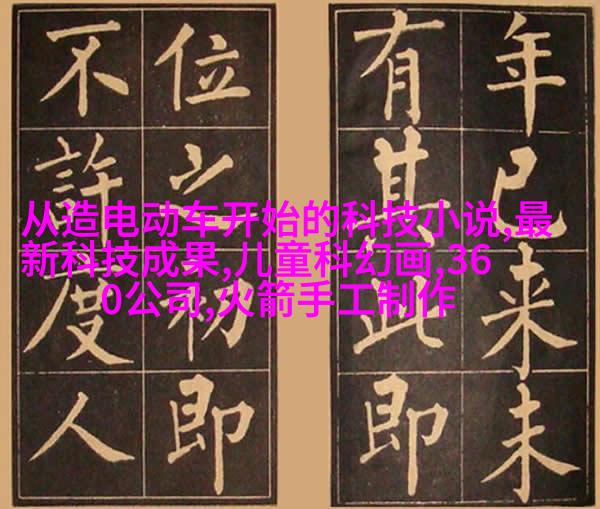 年已来未
有其此即
位之初即
不許度人
从造电动车开始的科技小说,最
新科技成果,儿童科幻画,36
0公司,火箭手工制作